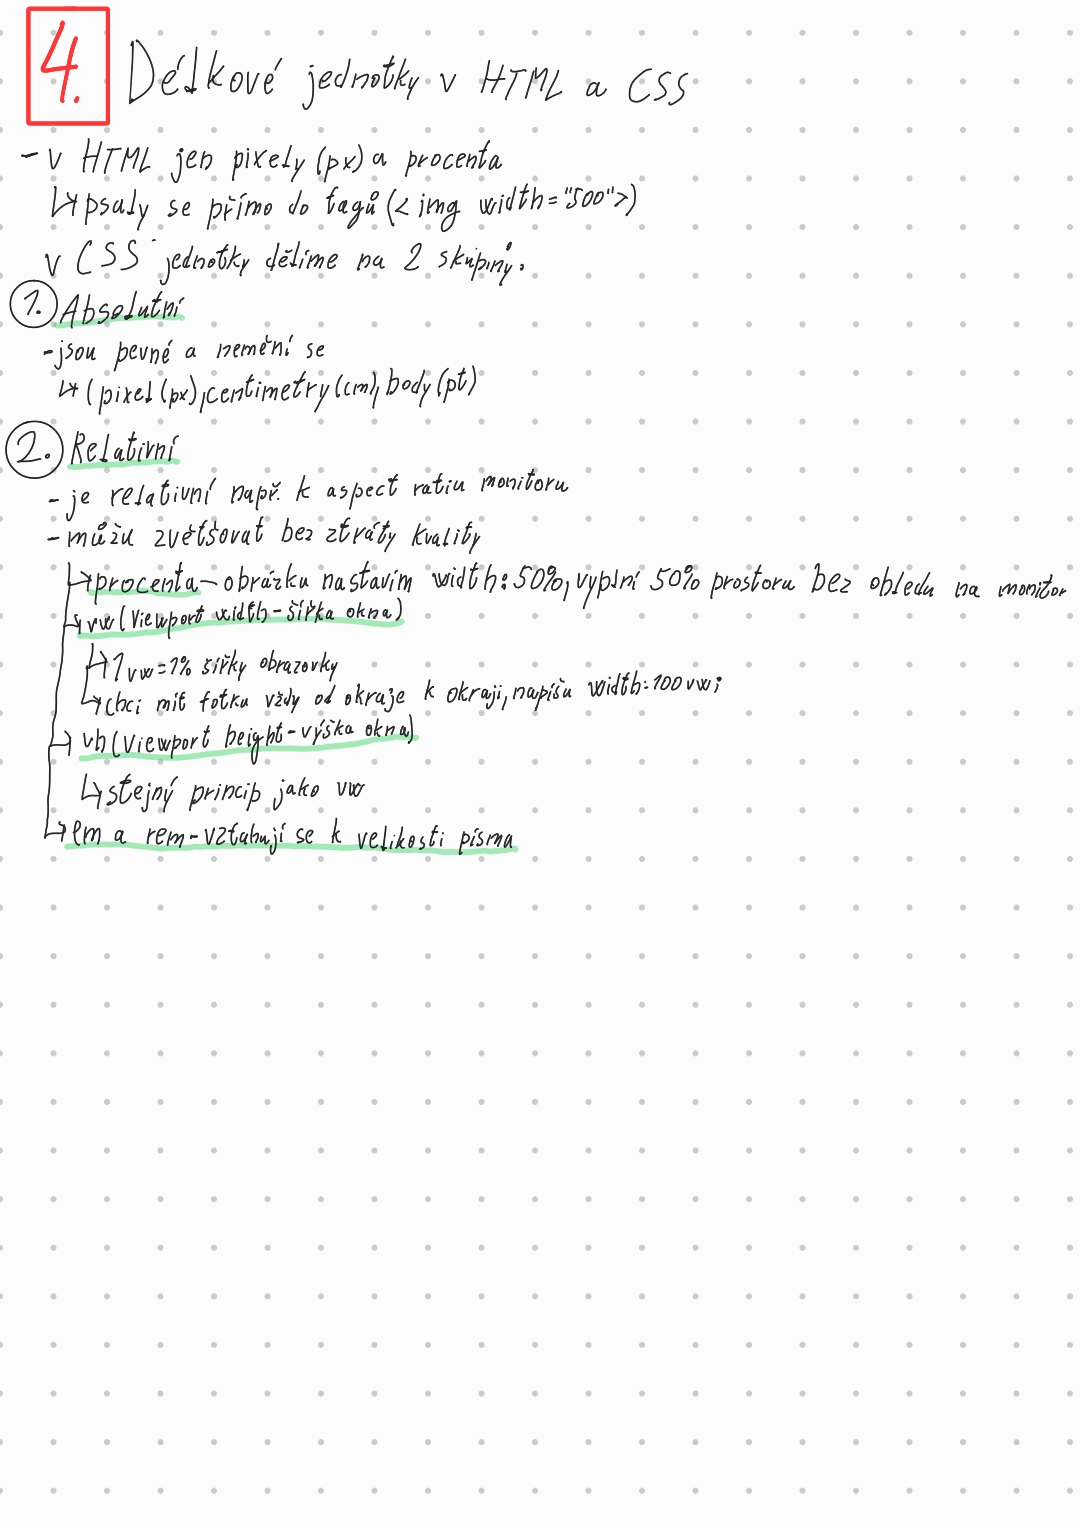 4. Délkové jednotky v HTML a CSS
- v HTML jen pixely (px) a procenta
↳ psaly se přímo do tagů (<img width="500">)
v CSS jednotky dělíme na 2 skupiny.
1. Absolutní
- jsou pevné a nemění se
↳ (pixel (px), centimetry (cm), body (pt)
2. Relativní
- je relativní např. k aspect ratiu monitoru
- můžu zvětšovat bez ztráty kvality
↳ procenta - obrázku nastavím width: 50%, vyplní 50% prostoru bez ohledu na monitor
↳ vw (Viewport width - šířka okna)
↳ 1vw = 1% šířky obrazovky
↳ chci mít fotku vždy od okraje k okraji, napíšu width: 100vw;
↳ vh (Viewport height - výška okna)
↳ stejný princip jako vw
↳ em a rem - vztahují se k velikosti písma